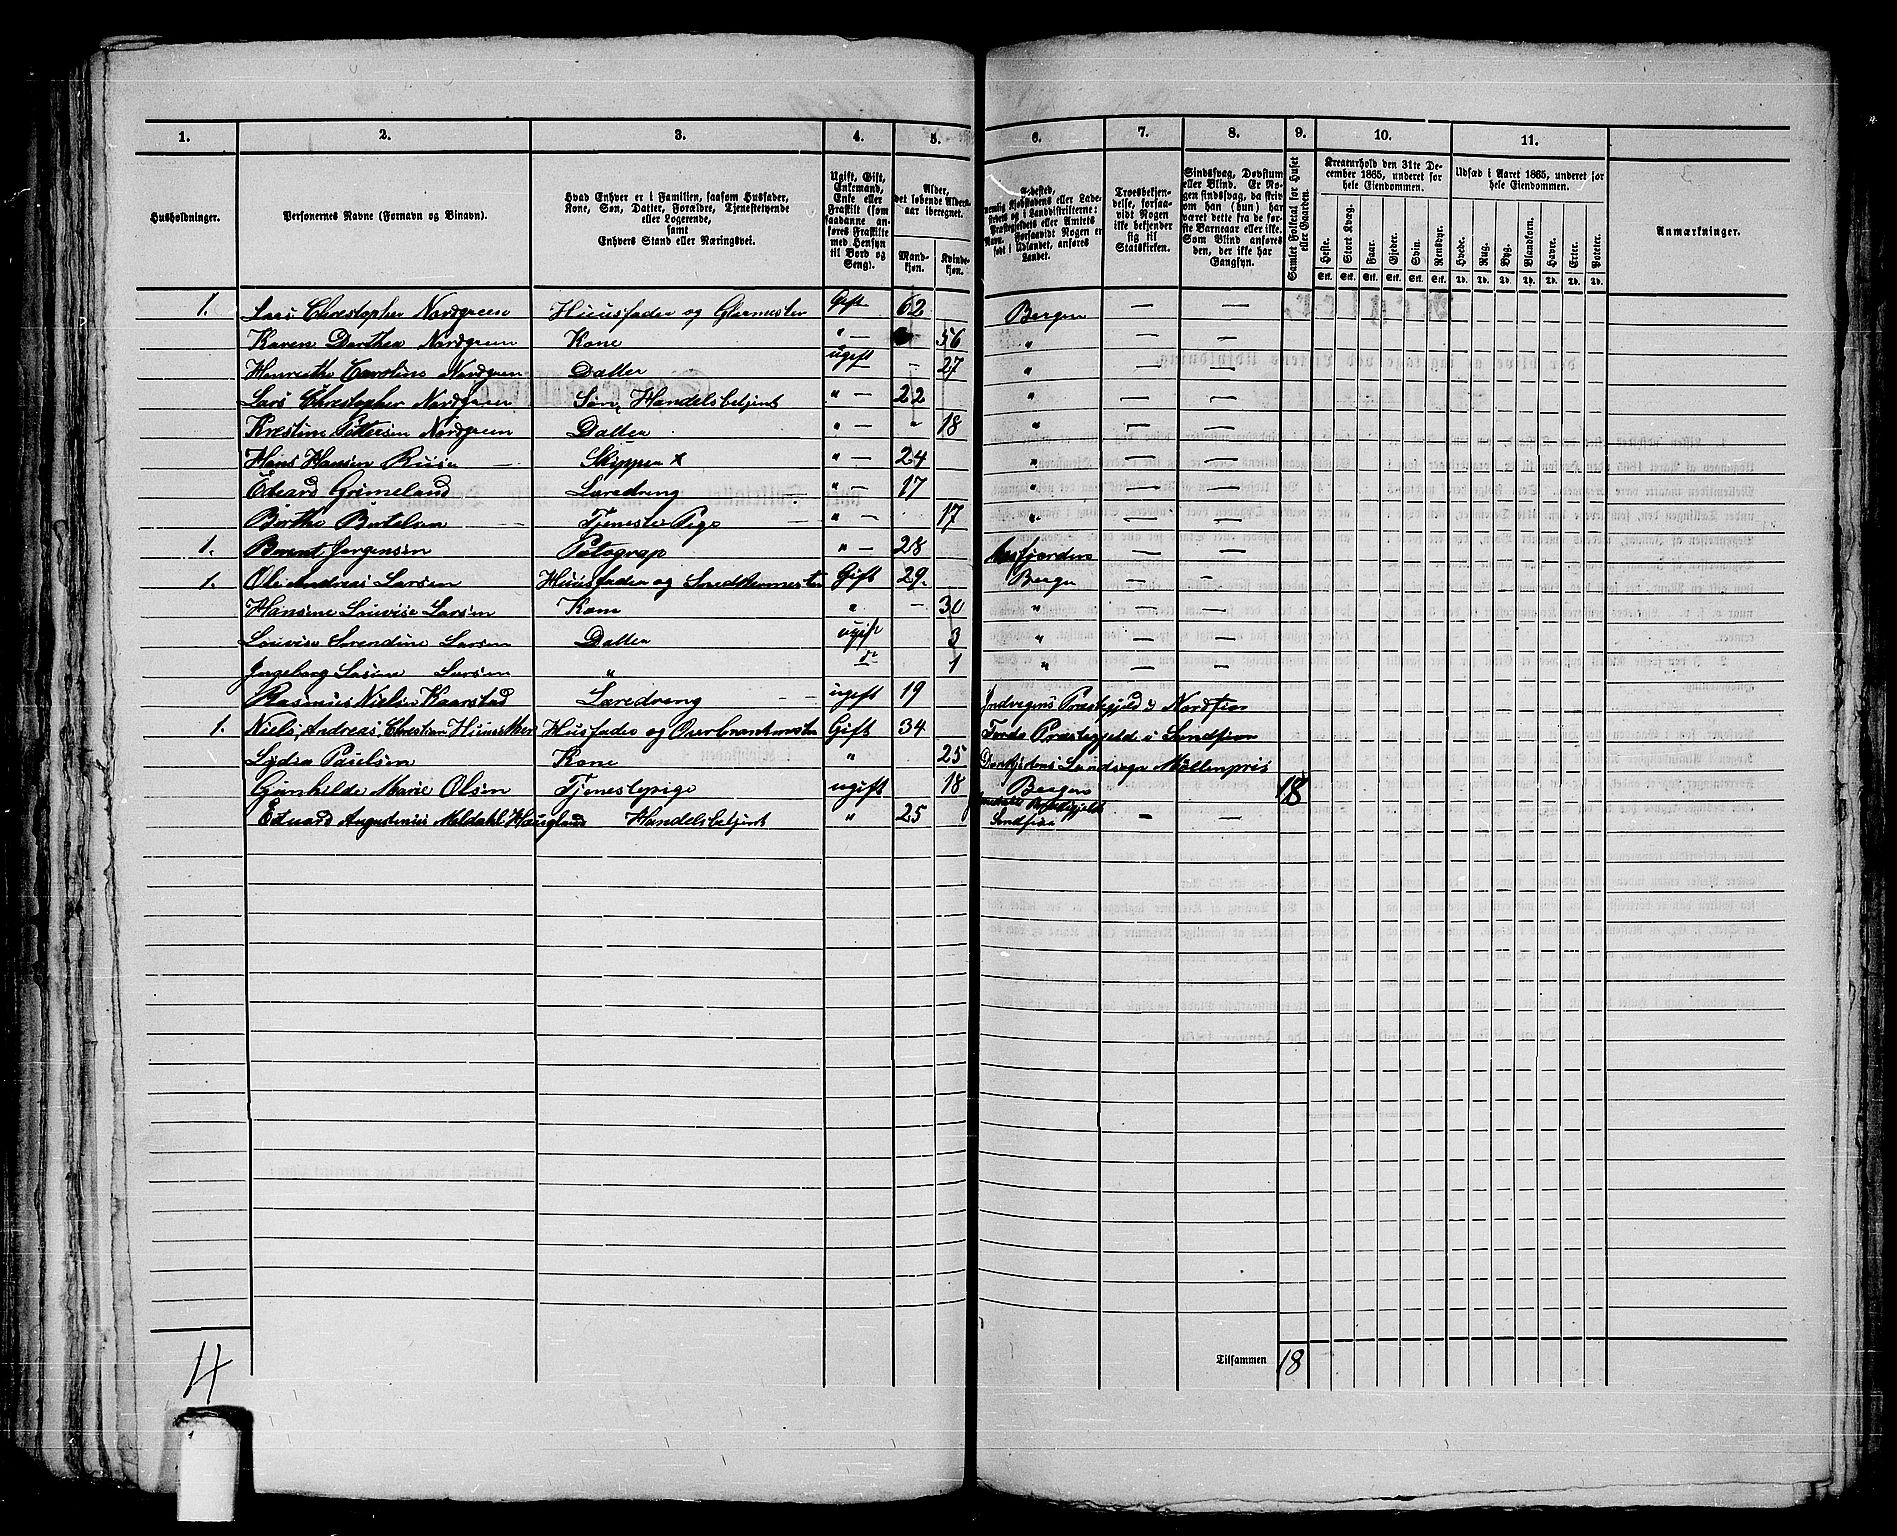 1. 2. 3. 4. 5. 6. 7. 8. 9. 10. 11.
Husholdninger.
Personernes Navne (Fornavn og Binavn).
Hvad Enhver er i Familien, saasom Husfader,
Kone, Søn, Datter, Forældre, Tjenestetyende
eller Logerende,
samt
Enhvers Stand eller Næringsvei.
Ugift, Gift,
Enkemand,
Enke eller
Fraskilt (som
saadanne an-
føres Fraskilte
med Hensyn
til Bord og
Seng).
Alder,
det løbende Alders-
aar iberegnet.
Mand-
kjøn.
Kvinde-
kjøn.
Troesbekjen-
delse, forsaa-
vidt Nogen
ikke bekjender
sig til
Statskirken.
Sindssvag, Døvstum
eller Blind. Er No-
gen sindssvag, da skriv
om han (hun) har
været dette fra de før-
ste Barneaar eller ikke.
Som Blind anføres
den, der ikke har
Gangsyn.
Samlet Folketal for Huset
eller Gaarden.
Kreaturhold den 31te De-
cember 1865, underet for
hele Eiendommen.
Heste. Stort Kvæg. Faar. Gjeder. Svin. Rensdyr.
Udsæd i Aaret 1865, underet for
hele Eiendommen.
Hvede. Rug. Byg. Blandkorn. Havre. Erter. Poteter.
Anmærkninger.
1. Lars Christopher Nordgreen Huusfader og Glarmester Gift 62 Bergen — —
Karen Dorthea Nordgreen Kone " — 56 " — —
Henriette Caroline Nordgreen Datter ugift — 27 " — —
Lars Christopher Nordgreen Søn, Handelsbetjent " — 22 " — —
Kristine Pettersen Nordgreen Datter " — " 18 " — —
Hans Hansen Ruse Skipper x " — 24 " — —
Edvard Grimeland Læredreng " — 17 " — —
Birthe Bertelsen Tjeneste Pige " — 17 " — —
1. Berent Jørgensen Potograp " — 28 — —
1. Ole Andreas Larsen Huusfader og Snedkermester Gift 29. Bergen — —
Hansine Lovise Larsen Kone " — 30 " — —
Lovise Sorendine Larsen Datter ugift 3 " — —
Ingeborg Larsen " do 1 " — —
Rasmus Nielsen Kaarstad Læredreng ugift 19 Indvigens Præstegjeld i Nordfior
1. Niels Andreas Christian Gift 34 Førde Præstegjeld i Sundfior
Lydia Paulsen Kone " 25 Møllenpris
Gunhilde Marie Olsen Tjenestepige ugift 18 Bergen 18
Edvard Augustinius Meldahl Hauglund Handelsbetjent " 25 Sundfior — —
Tilsammen 18
4